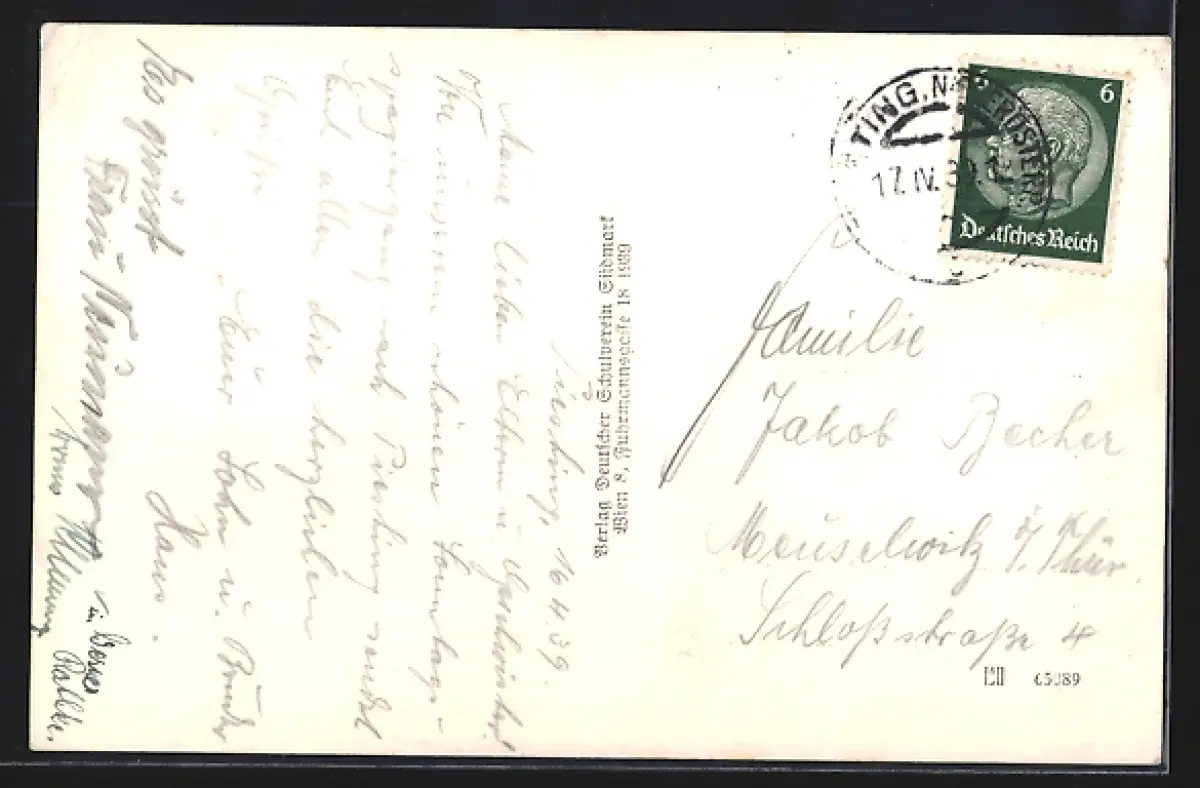 Piesting, 16.4.39.
Meine lieben Eltern u. Geschwister!
Von unserem schönen Sonntags-
spaziergang nach Piesting sendet
Euch allen die herzlichen
Grüße
Euer Sohn u. Bruder
Hans.
Es grüsst
Verlag Deutscher Schulverein Südmark
Wien 8, Fuhrmannsgasse 18 1939
TING, NIEDERDONAU
17. IV. 39
6
6
Deutsches Reich
Familie
Jakob Becher
Meuselwitz i. Thür.
Schloßstraße 4
65089